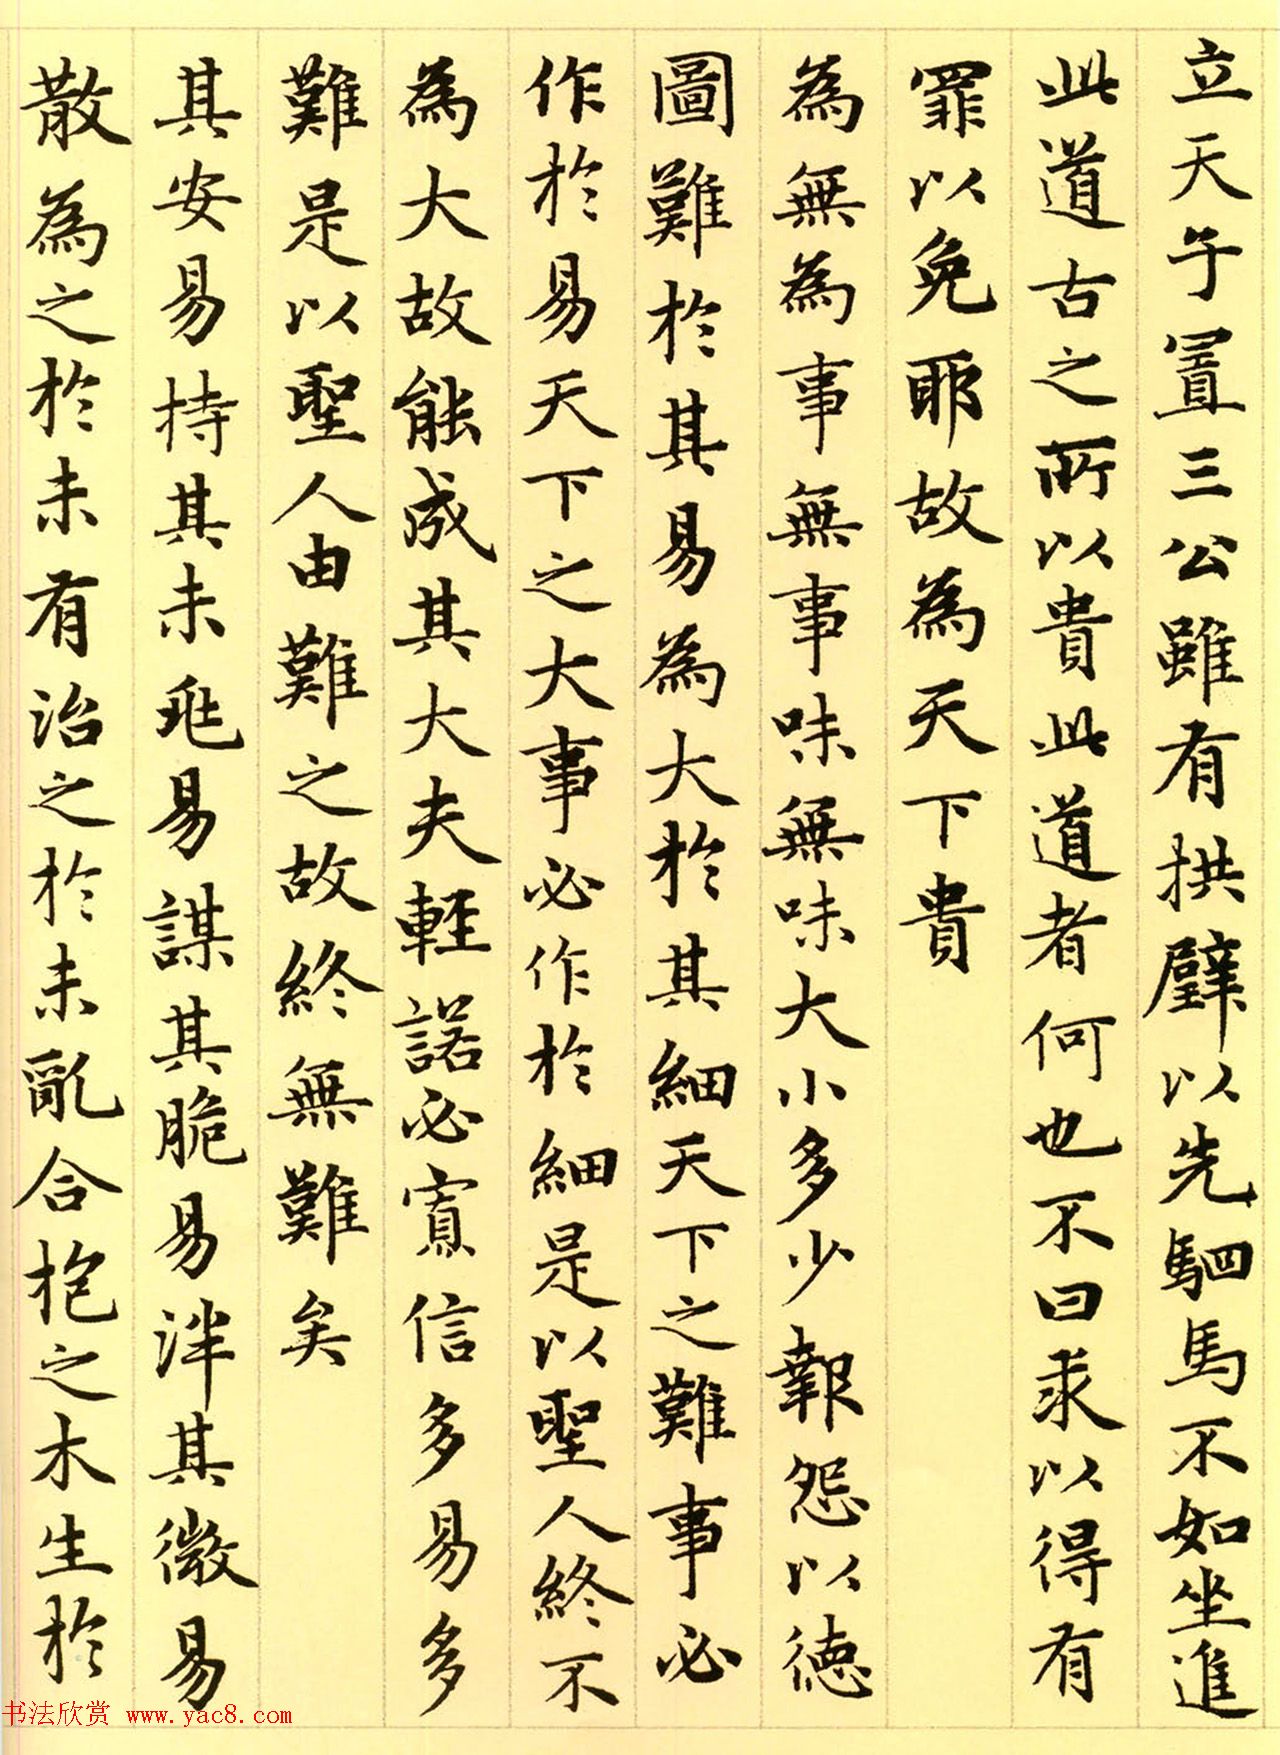 立天子置三公雖有拱璧以先駟馬不如坐進
此道古之所以貴此道者何也不曰求以得有
罪以免耶故為天下貴
為無為事無事味無味大小多少報怨以德
圖難於其易為大於其細天下之難事必
作於易天下之大事必作於細是以聖人終不
為大故能成其大夫輕諾必寡信多易多
難是以聖人由難之故終無難矣
其安易持其未兆易謀其脆易泮其微易
散為之於未有治之於未亂合抱之木生於
书法欣赏 www.yac8.com